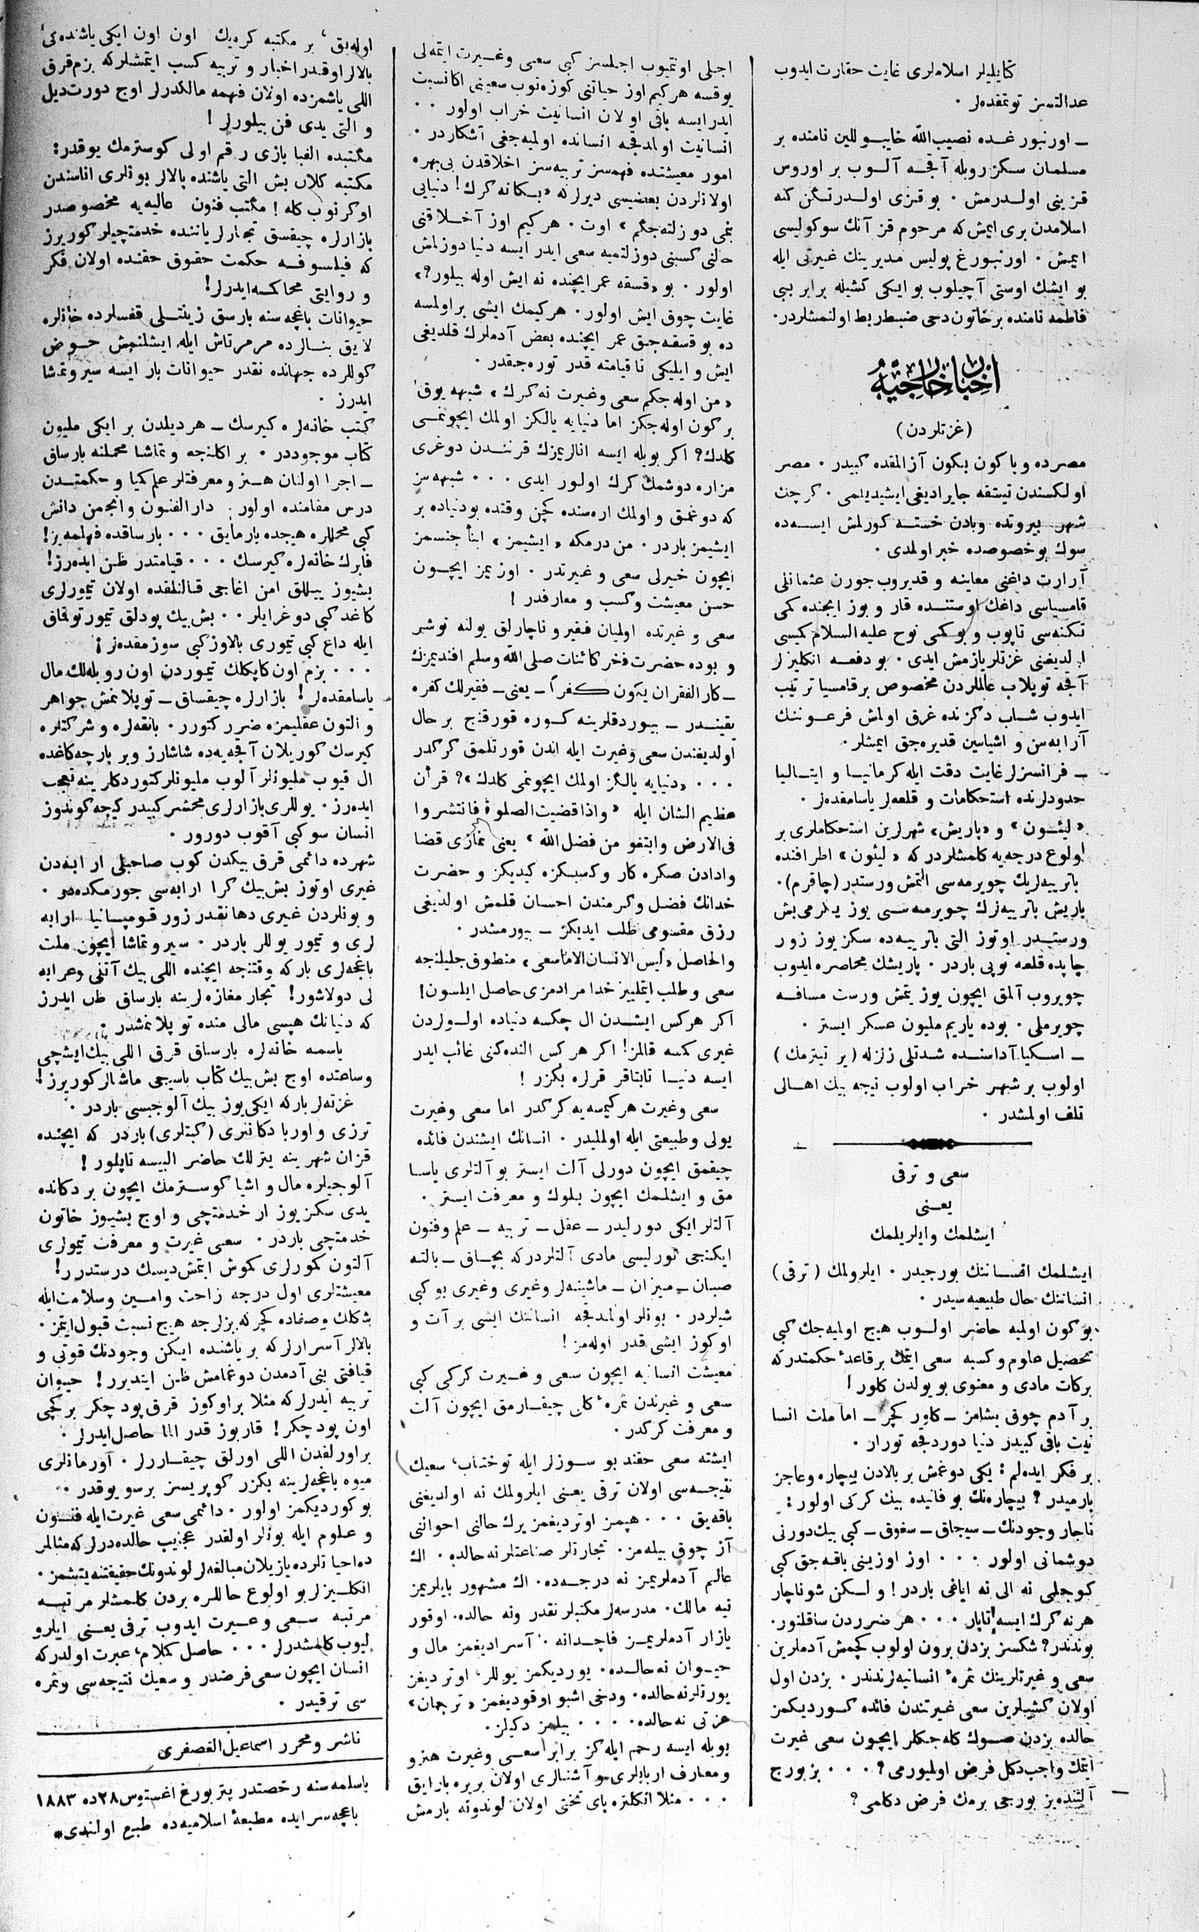 كتابلیلر اسلاملری غایت حقارت ایدوب
عدالتسز توتمقده‌لر ·
ـ اورنبورغده نصیب‌الله خایبوللین نامنده بر
مسلمان سكز روبله آقچه آلوب بر اوروس
قزینی اولدرمش · بو قزی اولدرتكن كنه
اسلامدن بری ایمش كه مرحوم قز آنك سوكولیسی
ایمش · اورنبورغ پولیس مدیرینك غیرتی ایله
بو ایشك اوستی آچیلوب بو ایكی كشیله برابر بیبی
فاطمه نامنده بر خاتون دخی ضبط ربط اولنمشلردر.
اخبار خارجیه
(غزتلردن)
مصرده وبا كون بكون آزالمقده كبیدر · مصر
اولكسندن تیشقه جایرادیغی ایشیدیلمی · كرچك
شهر بیروتده وبادن خسته كورلمش ایسه‌ده
سوك بو خصوصده خبر اولمدی ·
آرارت داغنی معاینه و قدیروب جورن عثمانلی
قامسیاسی داغك اوستنده قار و بوز ایچنده كمی
تكنه‌سی تاپوب و بو كمی نوح علیه السلام كمیسی
ایدیغنی غزتلر یازمش ایدی · بو دفعه انكلیزلر
آقچه توپلاب عالملردن مخصوص بر قامسیا ترتیب
ایدوب شاب دكزنده غرق اولمش فرعوننك
آرابه‌سن و اشیاسین قدیره‌جق ایمشلر.
ـ فرانسزلر غایت دقت ایله كرمانیا و ایتالیا
حدودلرنده استحكامات و قلعه‌لر یاسامقده‌لر.
«لیئون» و «پاریش» شهرلرین استحكاملری بر
اولوغ درجه‌یه كلمشلردر كه «لیئون» اطرافنده
باتریه‌لریك چویرمه‌سی التمش ورستدر (چاقرم).
پاریش باتریه‌لرك چویرمه‌سی یوز یكرمی بش
ورستدر اوتوز التی باتریه‌ده سكز یوز زور
چاپده قلعه توپی باردر · پاریشك محاصره ایدوب
چویروب آلمق ایچون یوز یتمش ورست مسافه
چویرملی · بوده یاریم ملیون عسكر ایستر ·
ـ اسكیا آداسنده شدتلی زلزله (یر تیترمك)
اولوب بر شهر خراب اولوب نیچه بیك اهالی
تلف اولمشدر ·
سعی و ترقی
یعنی
ایشلمك وایلریلمك
ایشلمك انساننك بورجیدر · ایلرولمك (ترقی)
انساننك حال طبیعیه‌سیدر ·
بو كون اولمیه حاضر اولوب هیچ اولمیه‌جك كبی
تحصیل علوم و كسبه سعی ایتمك بر قاعدهٔ حكمتدر كه
بركات مادی و معنوی بو یولدن كلور!
بر آدم چوق یشامز ـ كلور كچر ـ اما ملت انسا
نیت باقی كبیدر دنیا دوردقچه تورار ·
بر فكر ایده‌لم: یكی دوغمش بر بالادن بیچاره وعاجز
بارمیدر؟ بیچاره‌نك بو فانیده بیك كركی اولور:
ناچار وجودنك ـ سیجاق ـ سغوق ـ كبی بیك دورلی
دوشمانی اولور ··· اوز اوزینی باقه‌جق كبی
كوجلمی نه الی نه ایاغی باردر! ولكن شو ناچار
هر نه كرك ایسه تاپار ··· هر ضرردن ساقلنور.
بوندندر؟ شكسز بزدن برون اولوب كچمش آدملرین
سعی و غیرتلرینك ثمرهٔ انسانیه‌لرندندر · بزدن اول
اولان كشیلرین سعی غیرتندن فائده كوردیكمز
حالده بزدن صوك كله‌جكلر ایچون سعی غیرت
ایتمك واجب دكل فرض اولمیورمی؟ ··· بز بورج
آلمشده‌یز بورجی برمك فرض دكلمی؟
اجلی اونتمیوب اجلسز كبی سعی وغیرت ایتملی
یوقسه هركیم اوز حیاتنی كوزه‌نوب سعینی اكانسبت
ایدرایسه باقی اولان انسانیت خراب اولور ··
انسانیت اولمدقجه انسانده اولمیه‌جغی آشكاردر ·
امور معیشتده فهمسز تربیه‌سز اخلاقدن بی‌بهره
اولانلردن بعضیسی دیرلر كه «بكانه كرك! دنیایی
بنمی دوزلته‌جكم» اوت · هركیم اوز آخلاقنی
حالنی كسبنی دوزلتمیه سعی ایدر ایسه دنیا دوزلمش
اولور · بو «قسقه عمر ایچنده نه ایش اوله بیلور؟»
غایت چوق ایش اولور · هركیمك ایشی بر اولمسه
ده بو قسقه‌جق عمر ایچنده بعض آدملرك قلدیغی
ایش و ایلیكی تا قیامته قدر توره‌جقدر ·
«من اوله‌جكم سعی وغیرت نه كرك» شبهه یوق
بر كون اوله‌جكز اما دنیایه یالكز اولمك ایچونمی
كلدك؟ اكر بویله ایسه انالریمزك قرنندن دوغری
مزاره دوشمك كرك اولور ایدی ··· شبهه‌سز
كه دوغمق و اولمك اره‌سنده كچن وقتده بو دنیاده بر
ایشیمز باردر · من درمكه «ایشیمز» ابنأ جنسمز
ایچون خیرلی سعی و غیرتدر · اوزیمز ایچون
حسن معیشت وكسب و معارفدر!
سعی و غیرتده اولمیان فقیر و ناچارلق یولنه توشر
و بوده حضرت فخر كائنات صلی الله وسلم افندیمزك
ـ كار الفقران یكون كفراً ـ یعنی ـ فقیرلك كفره
یقیندر ـ بیوردقلرینه كوره قورقنج بر حال
اولدیغندن سعی وغیرت ایله اندن قورتلمق كركدر
··· «دنیایه یالكز اولمك ایچونمی كلدك»؟ قرآن
عظیم الشان ایله «واذا قضیت الصلوة فانتشروا
فی الارض وابتغو من فضل الله» یعنی نمازی قضا
وادادن صكره كار وكسبكزه كیدیكز و حضرت
خدانك فضل وكرمندن احسان قلمش اولدیغی
رزق مقسومی طلب ایدیكز ـ بیورمشدر ·
والحاصل «لیس الانسان الاماسعی» منطوق جلیلنجه
سعی و طلب ایتملییز خدا مرادمزی حاصل ایلسون!
اكر هركس ایشدن ال چكسه دنیاده اولوردن
غیری كمسه قالمز! اكر هركس النده‌كنی غائب ایدر
ایسه دنیا تابتاقر قرلره بكزر!
سعی وغیرت هر كیمسه‌یه كركدر اما سعی وغیرت
یولی وطبیعتی ایله اولملیدر · انسانك ایشندن فائده
چیقمق ایچون دورلی آلت ایستر بو آلتلری یاسا
مق و ایشلمك ایچون بلوك و معرفت ایستر ·
آلتلر ایكی دورلیدر ـ عقل ـ تربیه ـ علم وفنون
ایكنجی تورلیسی مادی آلتلردر كه بچاق ـ بالته
صبان ـ میزان ـ ماشینه‌لر وغیری وغیری بو كبی
شیلردر · بونلر اولمدقجه انساننك ایشی بر آت و
اوكوز ایشی قدر اوله‌مز!
معیشت انسانیه ایچون سعی و غیرت كركی كبی
سعی و غیرتدن ثمرهٔ كلی چیقارمق ایچون آلت
و معرفت كركدر ·
ایشته سعی حقنده بو سوزلر ایله توختاب سعیك
نتیجه‌سی اولان ترقی یعنی ایلرولمك نه اولدیغنی
باقه‌یق ··· هپمز اوتردیغمز یرك حالنی احوالنی
آز چوق بیله‌مز · تجارتلر صناعتلر نه حالده · اك
عالم آدملریمز نه درجه‌ده · اك مشهور بایلریمز
نیه مالك · مدرسه‌لر مكتبلر نقدر ونه حالده · اوقور
یازار آدملریمز قاچدانه · آسرادیغمز مال و
حیوان نه حالده · یوردیكمز یوللر، اوتردیغز
یورتلر نه حالده · ودخی اشبو اوقودیغمز «ترجمان»
غزتی نه حالده ··· بیلمز دكلز ·
بویله ایسه رحم ایله‌كز برابر سعی وغیرت هنرو
و معارف اربابلری و آشنالری اولان بریره بارایق
··· مثلا انكلتره پای تختی اولان لوندونه بارمش
اوله‌یق، بر مكتبه كره‌یك اون اون ایكی یاشنده‌كی
بالالر اوقدر اخبار و تربیه كسب ایتمشلر كه بزم قرق
اللی یاشمزده اولان فهمه مالكدرلر اوج دورت دیل
و التی یدی فن بیلورلر!
مكتبده الفبا یازی رقم اولی كوسترمك یوقدر:
مكتبه كلان بش التی یاشنده بالالر بونلری اناسندن
اوكرنوب كله! مكتب فنون عالیه‌یه مخصوصدر
بازارلره چیقسق تجارلر یاننده خدمتچیلر كوریرز
كه فیلسوفه حكمت حقوق حقنده اولان فكر
و روایتی محاكمه ایدرلر!
حیوانات باغچه‌سنه بارسق زینتلی قفسلرده خانلره
لایق بنالرده مرمرتاش ایله ایشلنمش حوض
كوللرده جهانده نقدر حیوانات بار ایسه سیر وتماشا
ایدرز ·
كتب خانه‌لره كیرسك ـ هر دیلدن بر ایكی ملیون
كتاب موجوددر · بر اكلنجه و تماشا محلنه بارساق
ـ اجرا اولنان هنر و معرفتلر علم كمیا و حكمتدن
درس مقامنده اولور: دار الفنون وانجمن دانش
كبی محللره هیچده بارمایق ··· بارساقده فهلمه‌یز!
فابرك خانه‌لره كیرسك ··· قیامتدر ظن ایده‌رز!
بشیوز ییللق امن اغاجی قالنلقده اولان تیمورلری
كاغد كبی دوغرایلر ·· بش بیك پودلق تیمور توقماق
ایله داغ كبی تیموری بالاوز كبی سوزمقده‌لر!
··· بزم اون كاپكلك تیموردن اون روبله‌لك مال
یاسامقده‌لر! بازارلره چیقساق ـ توپلانمش جواهر
و التون عقلیمزه ضرر كتورر · بانقه‌لره و شركتلره
كیرسك كوریلان آقچه‌یه‌ده شاشارز وبر پارچه كاغده
ال قیوب ملیونلر آلوب ملیونلر كتوردكلرینه تعجب
ایده‌رز · یوللری بازارلری محشر كبیدر كیچه كوندوز
انسان سو كبی آقوب دورور ·
شهرده دائمی قرق بیكدن كوب صاحبلی ارابه‌دن
غیری اوتوز بش بیك كرا ارابه‌سی جورمكده‌در ·
و بونلردن غیری دها نقدر زور قومپانیا ارابه
لری و تیمور یوللر باردر · سیر وتماشا ایچون ملت
باغچه‌لری بار كه وقتنجه ایچنده اللی بیك آتلی وعرابه
لی دولاشور! تجار مغازه‌لرینه بارساق ظن ایدرز
كه دنیانك هپسی مالی منده توپلانمشدر ·
باسمه خانه‌لره بارساق قرق اللی بیك ایشچی
وساعتده اوچ بش بیك كتاب باسیجی ماشنا كوریرز!
غزته‌لر بار كه ایكی یوز بیك آلوجیسی باردر ·
ترزی و اوربا دكاننری (كیتلری) باردر كه ایچنده
قزان شهرینه یترلك حاضر البیسه تاپلور!
آلوجیلره مال و اشیا كوسترمك ایچون بر دكانده
یدی سكز یوز ار خدمتچی و اوچ بشیوز خاتون
خدمتچی باردر · سعی غیرت و معرفت تیمورلری
آلتون كمورلری كموش ایتمش دیسك درستدرر!
معیشتلری اول درجه راحت وامین وسلامت ایله
شكلك وصفاده كچر كه بزلرجه هیچ نسبت قبول ایتمز ·
بالالر آسرارلر كه بر یاشنده ایكن وجودنك قوتی و
قیافتی بنی آدمدن دوغمامش ظن ایتدیرر! حیوان
تربیه ایدرلر كه مثلا بر اوكوز قرق پود چكر بر كچی
اون پود چكر! قاربوز قدر الما حاصل ایدرلر ·
بر اورلقدن اللی اورلق چیقاررلر · اورمانلری
میوه باغچه‌لرینه بكزر كوپریسز بر سو یوقدر ·
بو كوردیكمز اولور · دائمی سعی غیرت ایله فنون
و علوم ایله بونلر اولقدر عجیب حالده درلر كه مثاللر
ده احیانلرده یازیلان مبالغه‌لر لوندونك حقیقتنه یتیشمز ·
انكلیزلر بو اولوغ حاللره بردن كلمشلر مرتبه
مرتبه سعی و غیرت ایدوب ترقی یعنی ایلرو
لیوب كلمشدرلر ··· حاصل كلام، عبرت اولدر كه
انسان ایچون سعی فرضدر و سعیك نتیجه‌سی وثمره
سی ترقیدر ·
ناشر و محرر اسماعیل الغصفری
باسلمه‌سنه رخصتدر پتربورغ اغستوس ۲۸ ده ۱۸۸۳
باغچه‌سرایده مطبعهٔ اسلامیه‌ده طبع اولندی*